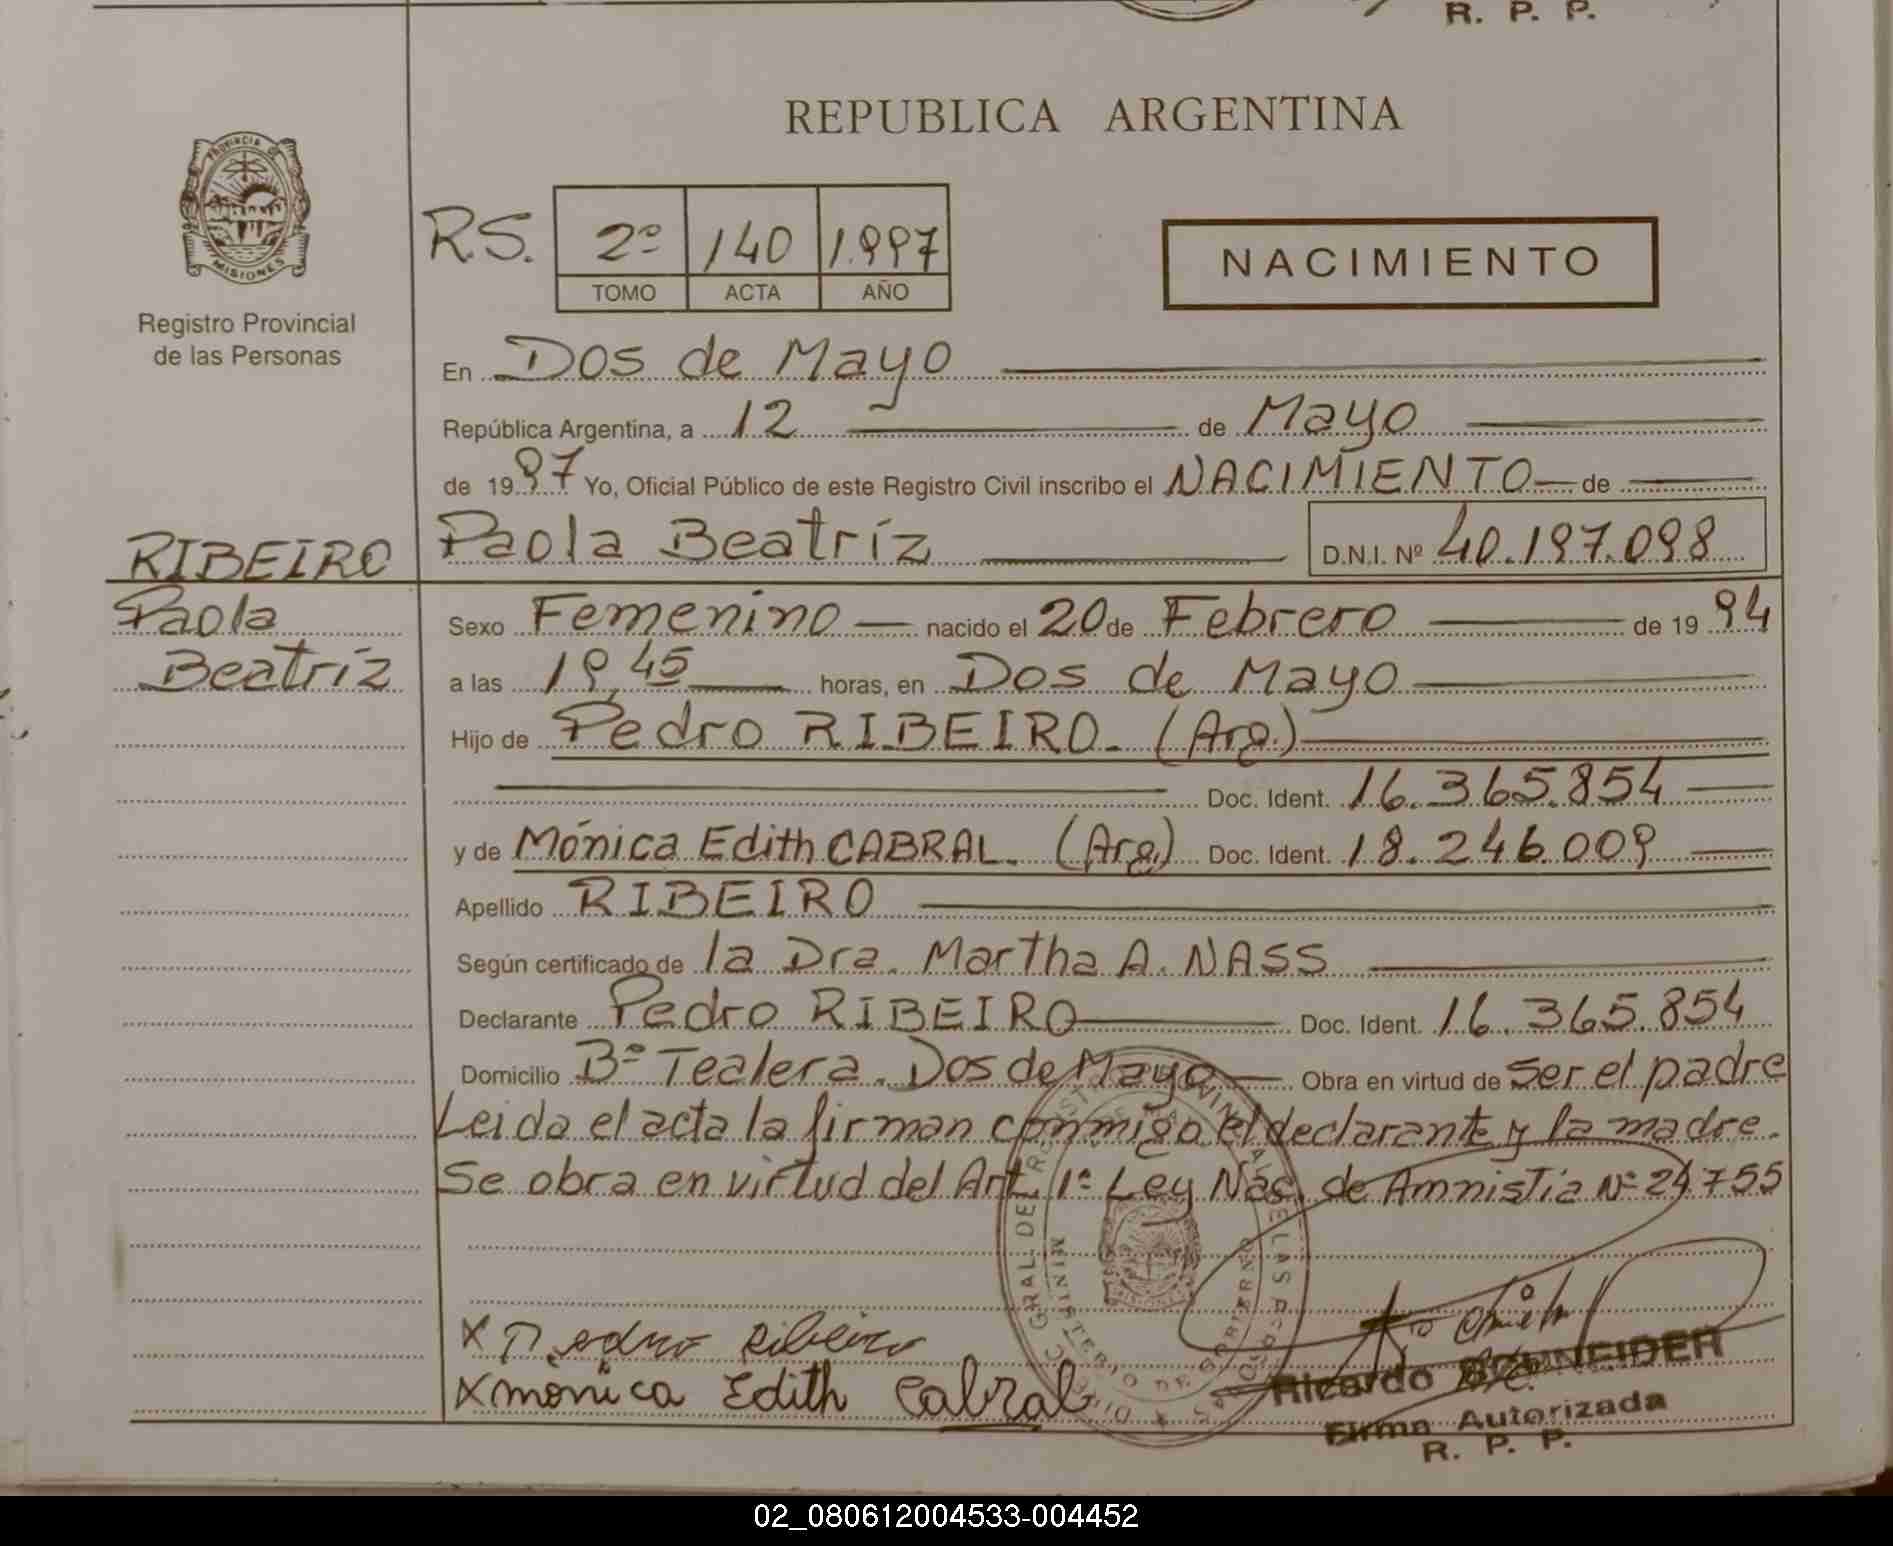 R. P. P.
REPUBLICA ARGENTINA
PROVINCIA DE
MISIONES
Registro Provincial
de las Personas
R.S. 2º 140 1.997
TOMO ACTA AÑO
NACIMIENTO
En Dos de Mayo
República Argentina, a 12 de Mayo
de 1997 Yo, Oficial Público de este Registro Civil inscribo el NACIMIENTO de
RIBEIRO Paola Beatríz D.N.I. Nº 40.197.098
Paola Sexo Femenino nacido el 20 de Febrero de 1994
Beatríz a las 19,45 horas, en Dos de Mayo
Hijo de Pedro RIBEIRO. (Arg.)
Doc. Ident. 16.365.854
y de Mónica Edith CABRAL. (Arg.) Doc. Ident. 18.246.009
Apellido RIBEIRO
Según certificado de la Dra. Martha A. NASS
Declarante Pedro RIBEIRO Doc. Ident. 16.365.854
Domicilio Bº Tealera. Dos de Mayo Obra en virtud de ser el padre
Leida el acta la firman conmigo el declarante y la madre.
Se obra en virtud del Art. 1º Ley Nac. de Amnistía Nº 24755
X Pedro Ribeiro
X monica Edith Cabral
MINISTERIO DE GOBIERNO
Ricardo SCHNEIDER
Firma Autorizada
R. P. P.
02_080612004533-004452